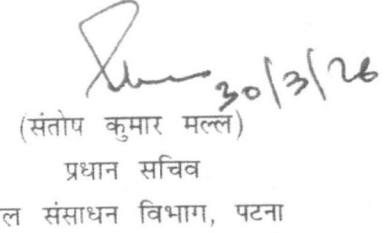 30/3/26
(संतोष कुमार मल्ल)
प्रधान सचिव
ल संसाधन विभाग, पटना